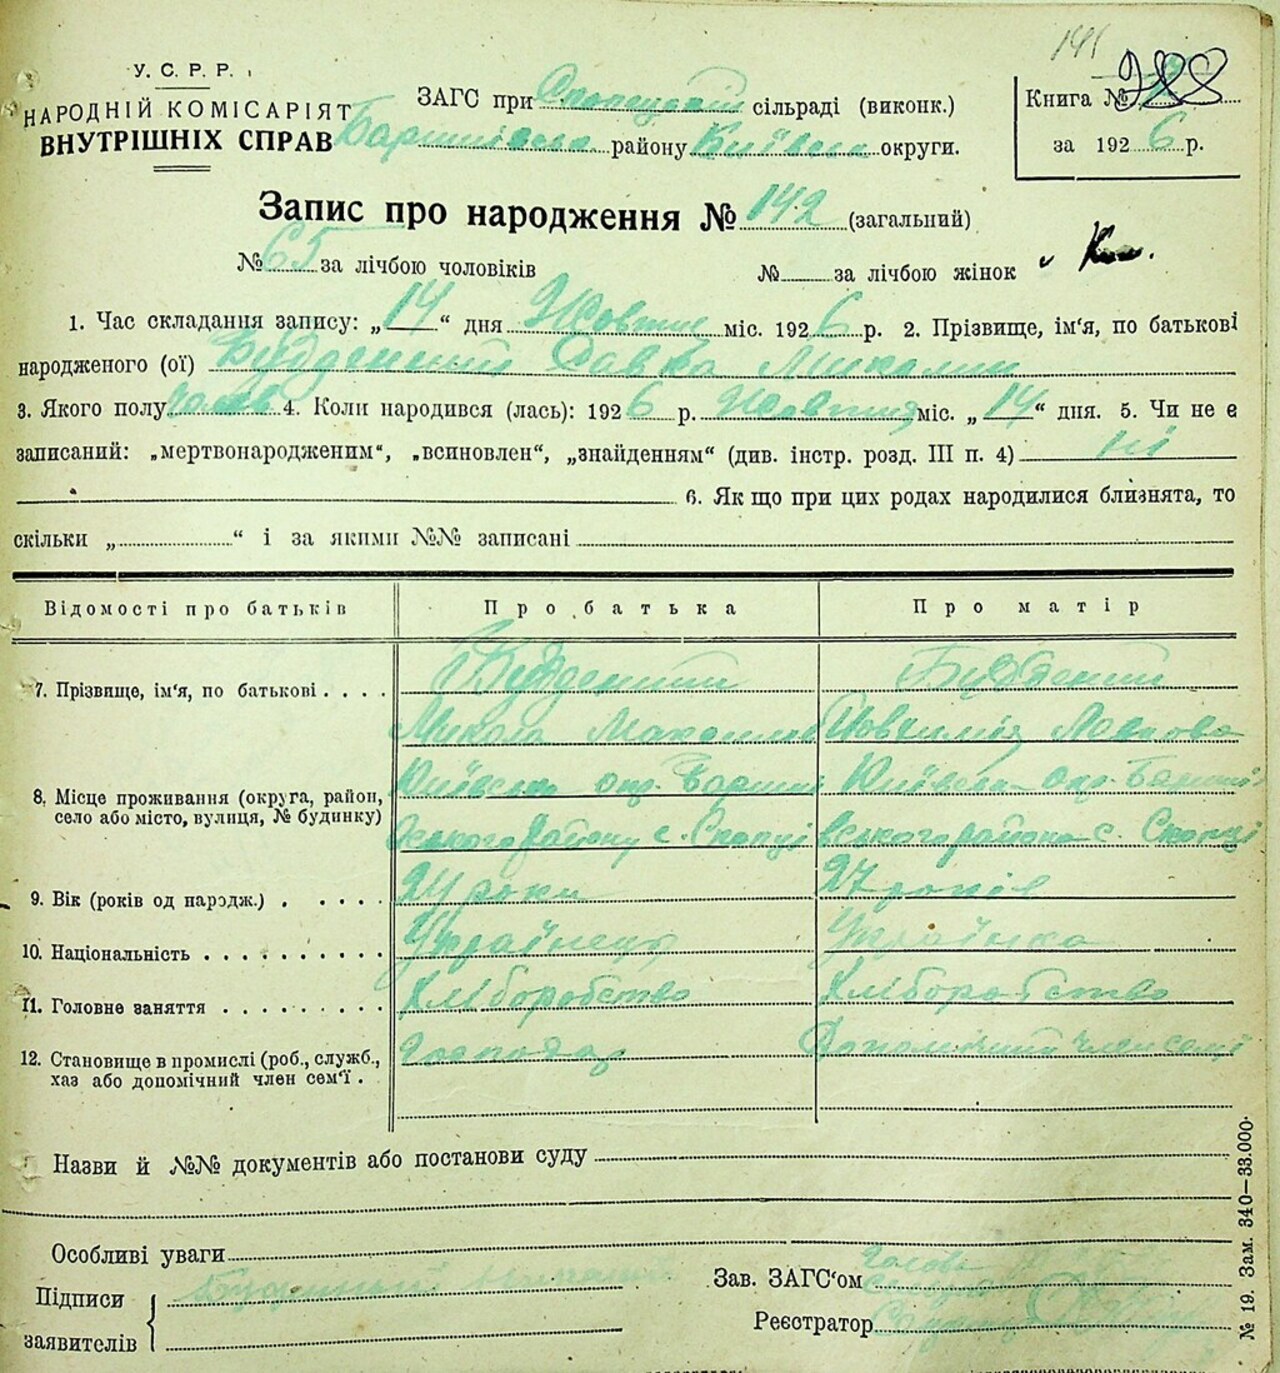 141
У. С. Р. Р.
НАРОДНІЙ КОМІСАРІЯТ
ВНУТРІШНІХ СПРАВ
ЗАГС при Скопецькій сільраді (виконк.)
Баришівськ району Київськ округи.
Книга №
за 1926 р.
Запис про народження № 142 (загальний)
№ 65 за лічбою чоловіків № за лічбою жінок
1. Час складання запису: „14“ дня Жовтня міс. 1926 р. 2. Прізвище, ім'я, по батькові
народженого (ої) Буденний Савка Миколин
3. Якого полу чолов 4. Коли народився (лась): 1926 р. Жовтня міс. „14“ дня. 5. Чи не є
записаний: „мертвонародженим“, „всиновлен“, „знайденням“ (див. інстр. розд. III п. 4) ні
6. Як що при цих родах народилися близнята, то
скільки „ “ і за якими №№ записані
Відомості про батьків Про батька Про матір
7. Прізвище, ім'я, по батькові Буденний Буденний
Микола Максимов Левкова
8. Місце проживання (округа, район, село або місто, вулиця, № будинку) Київськ окр. Бариші Київська окр. Бариші
вського району с. Скопці вського района с. Скопці
9. Вік (років од народж.) 24 роки 27 років
10. Національність Українець Українка
11. Головне заняття Хліборобство Хліборобство
12. Становище в промислі (роб., служб., хаз або допомічний член сем'ї. Господар Допомічний член семї
Назви й №№ документів або постанови суду
Особливі уваги
Підписи
заявителів
Зав. ЗАГС'ом
Реєстратор
№ 19. Зам. 340—33.000.